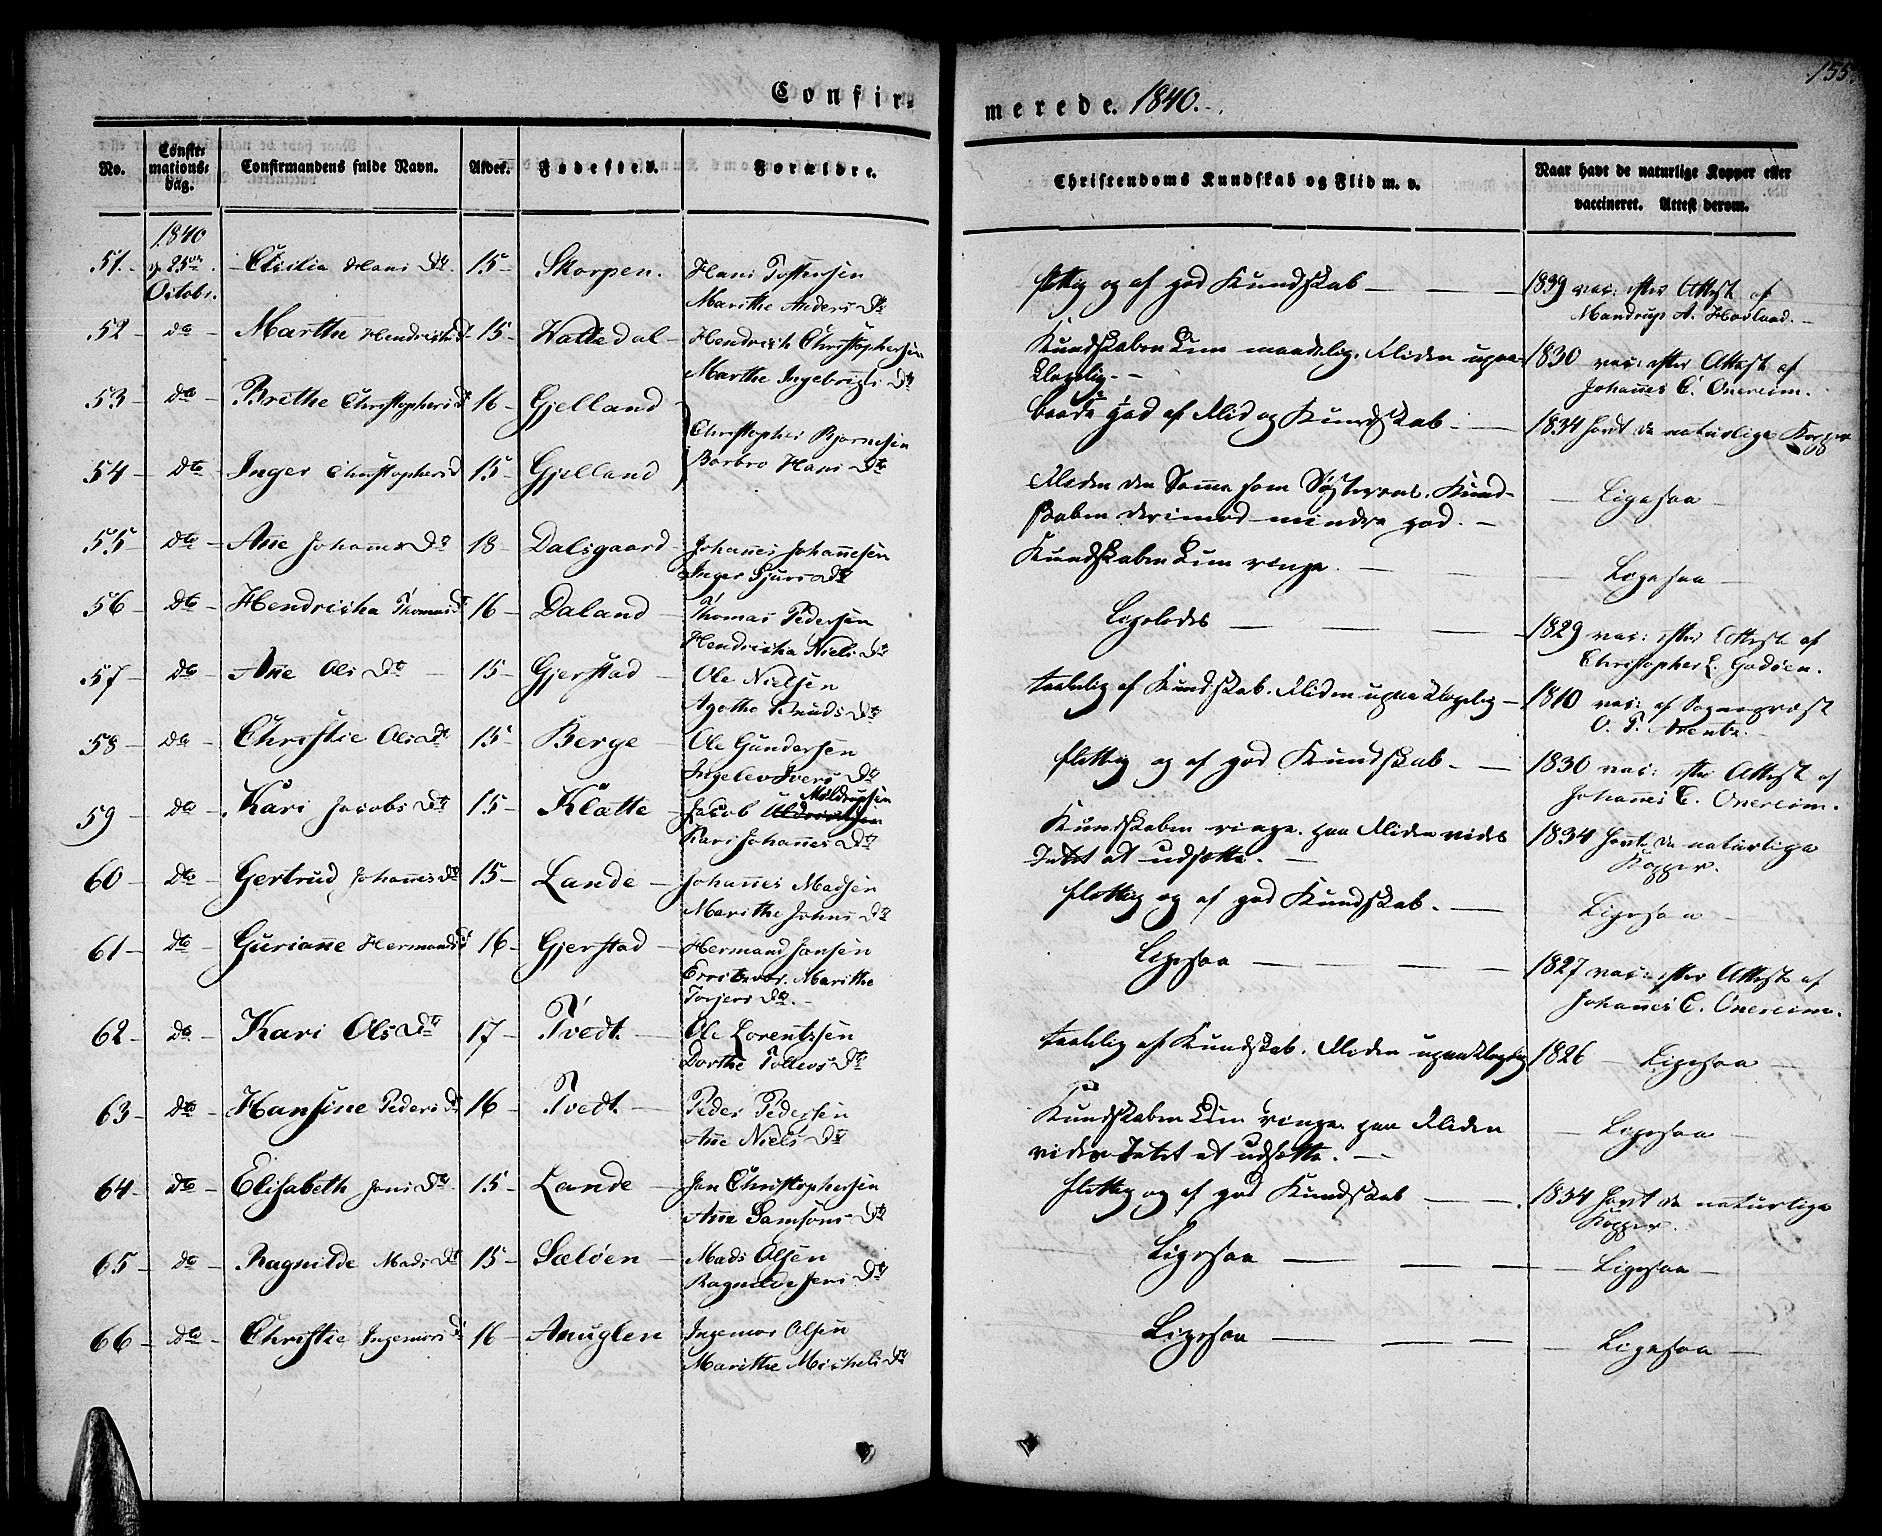 155.
Confir-
merede. 1840.
No.
Confir-
mations-
dag.
Confirmandens fulde Navn.
Alder.
Fødested.
Forældre.
Christendoms Kundskab og Flid m. v.
Naar havt de naturlige Kopper eller
vaccineret. Attest derom.
1840
51. 25de Cicilia Hans Dtr. 15 Skorpen. Hans
Octobr.
Marithe Anders Dtr
flittig og af god Kundskab 1839 vac: efter Attest af
Mandrup A. Havland.
52 do Marthe Hendrichs Dtr 15 Hattedal Hendrich Christophersen
Marthe Ingebrigts Dtr
Kundskaben kun maadelig. Fliden upaa- 1830 vac: efter Attest af
klagelig. Johannes C. Onereim.
53 do Brithe Christophers Dtr 16 Gjelland
Christopher Bjørnesen
baade god af Flid og Kundskab 1834 havt de naturlige Kopper
54 dto Inger Christophersd 15 Gjelland Barbro Hans Dtr
Fliden den Samme som Søsterens. Kund- Ligesaa
skaben derimod mindre god.
55 dto Ane Johannes Dtr 18 Dalsgaard Johannes Johannesen
Inger Sjurs Dtr
Kundskaben kun ringe. Ligesaa
56 Dto Hendricha Thomas Dtr 16 Daland Thomas Pedersen
Hendricha Niels Dtr
Ligeledes 1829 vac: efter Attest af
Christopher L. Godøen.
57 do Ane Ols Dtr 15 Gjerstad Ole Nielsen
Agathe Knuds Dtr
taalelig af Kundskab. Fliden upaaklagelig 1840 vac: af Sognepræst
58 do Christie Ols Dtr 15 Berge Ole Gundersen
Ingelev Ivers Dtr
flittig og af god Kundskab. 1830 vac: efter Attest af
Johannes C. Onereim.
59 do Kari Jacobs Dtr 15 Klatte Jacob Møldrupsen
Kari Johannes Dtr
Kundskaben ringe. paa Fliden vides 1834 havt de naturlige
Intet at udsætte. Kopper.
60 Dto Gertrud Johannes Dtr 15 Lande Johannes Madsen
Marithe Johns Dtr
flittig og af god Kundskab. Ligesaa
61 Dto Guriane Hermands Dtr 16 Gjerstad Hermand Jansen
Marithe
Torjers Dtr.
Ligesaa 1827 vac: efter Attest af
Johannes C. Onereim.
62 do Kari Ols Dtr 17 Tvedt. Ole Lorentzsen
Dorthe Tollevs Dtr
taalelig af Kundskab. Fliden upaaklagelig 1826 Ligesaa
63 Dto Hansine Peders Dtr 16 Tvedt Peder Pedersen
Ane Niels Dtr
Kundskaben kun ringe. paa Fliden Ligesaa
vides Intet at udsætte.
64 Dto Elisabeth Jans Dtr 15 Lande Jan Christophersen
Ane Samsons Dtr
flittig og af god Kundskab 1834 havt de naturlige
Kopper.
65 do Ragnilde Mads Dtr 15 Sæløen Mads Olsen
Ragnilde Jens Dtr
Ligesaa Ligesaa
66 Do Christie Ingemars Dtr 16 Anuglen Ingemar Olsen
Marithe Michels Dtr
Ligesaa Ligesaa